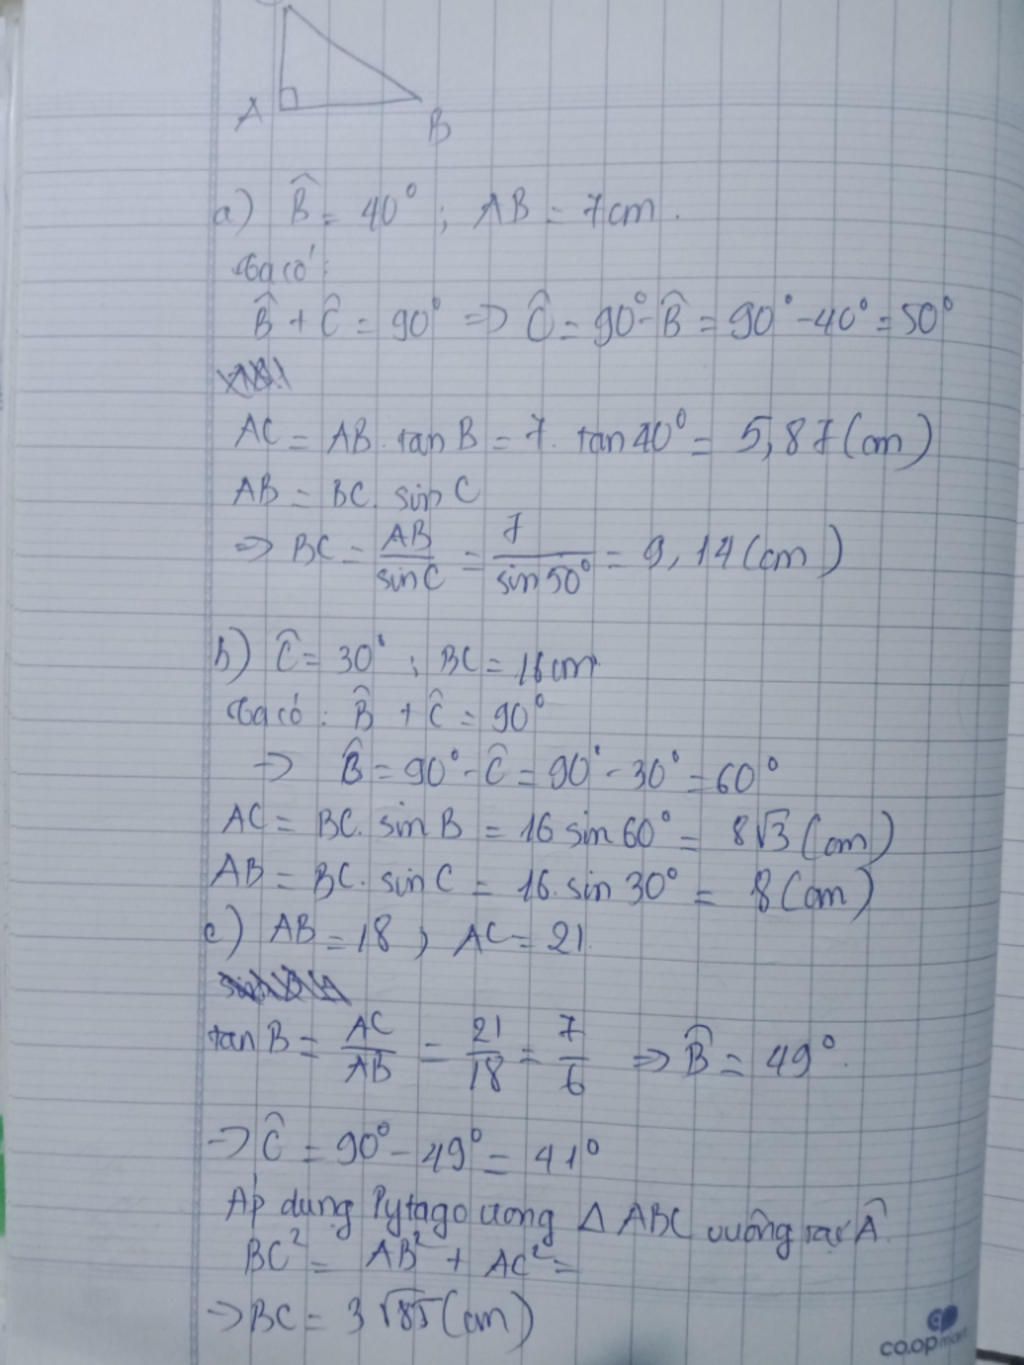 A
B
a) B̂ = 40° ; AB = 7cm.
Ta có:
B̂ + Ĉ = 90° => Ĉ = 90° - B̂ = 90° - 40° = 50°
AC = AB. tan B = 7. tan 40° = 5,87 (cm)
AB = BC. sin C
=> BC = AB/sin C = 7/sin 50° = 9,14 (cm)
b) Ĉ = 30° ; BC = 16cm
Ta có: B̂ + Ĉ = 90°
=> B̂ = 90° - Ĉ = 90° - 30° = 60°
AC = BC. sin B = 16 sin 60° = 8√3 (cm)
AB = BC. sin C = 16. sin 30° = 8 (cm)
c) AB = 18 ; AC = 21.
tan B = AC/AB = 21/18 = 7/6 => B̂ = 49°.
=> Ĉ = 90° - 49° = 41°
Áp dụng Pytago trong Δ ABC vuông tại Â.
BC² = AB² + AC² =
=> BC = 3√85 (cm)
co.opmart